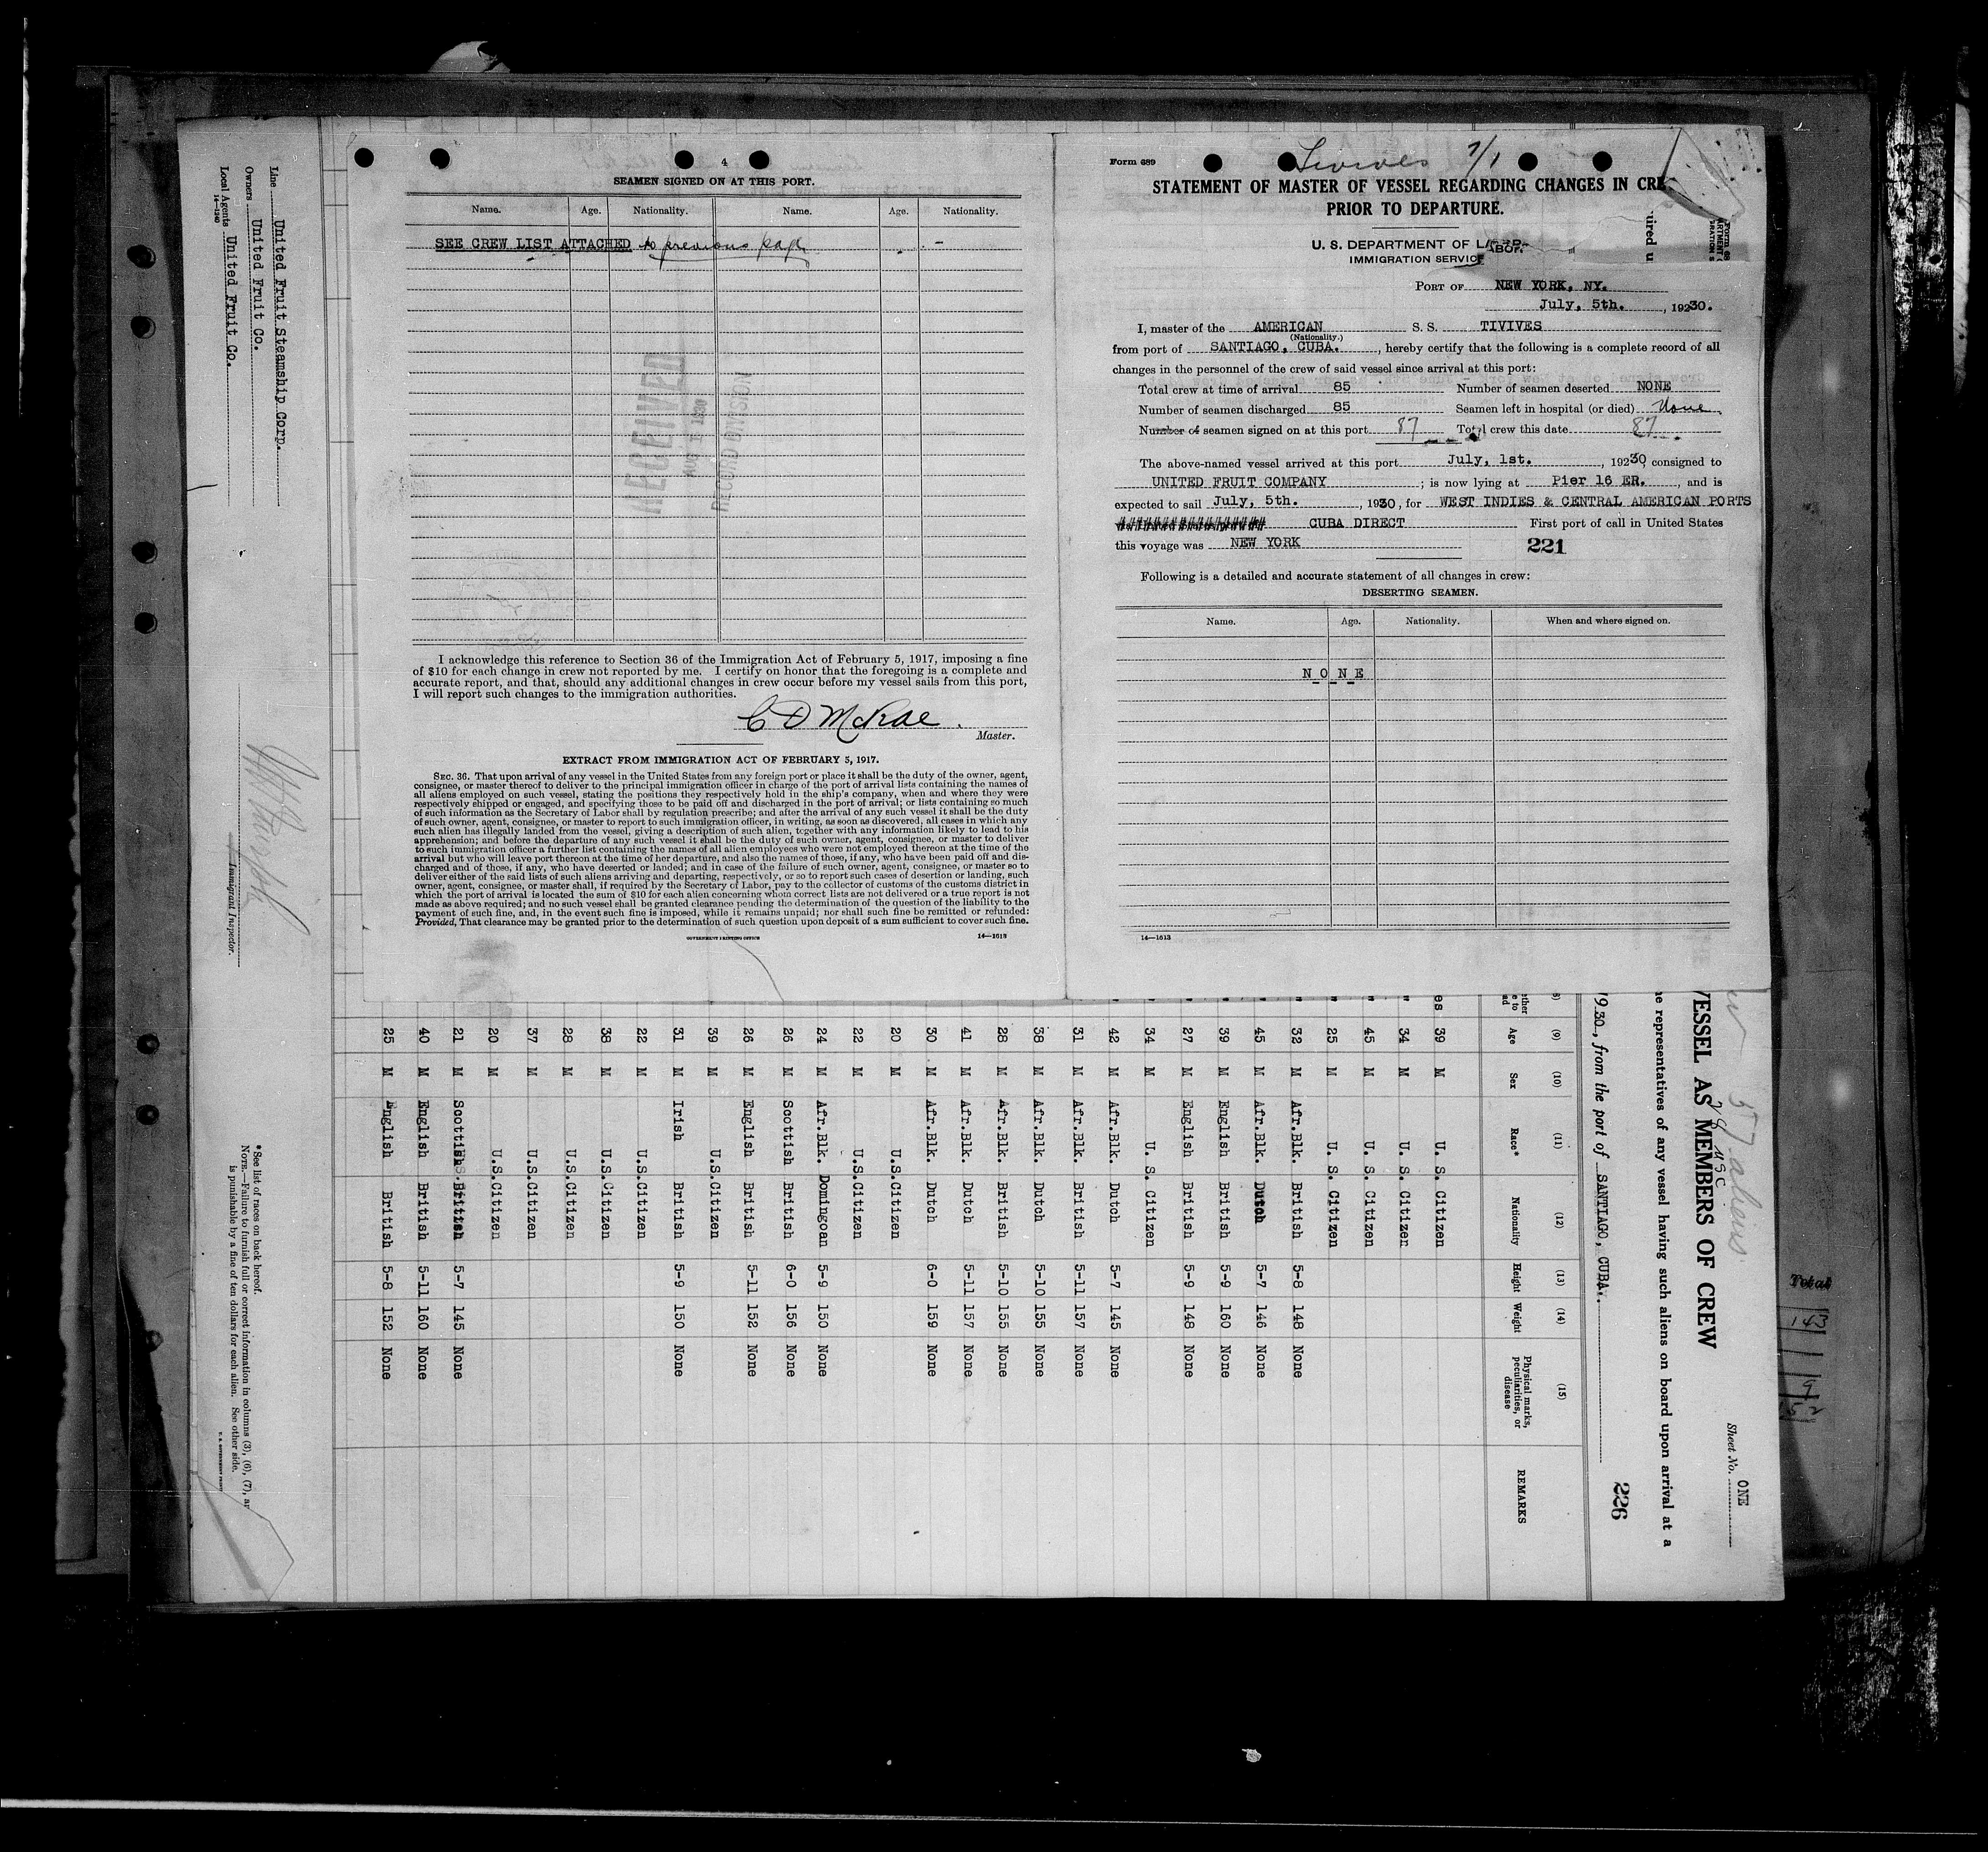 4
SEAMEN SIGNED ON AT THIS PORT.
Name. Age. Nationality. Name. Age. Nationality.
SEE CREW LIST ATTACHED to previous page
RECEIVED
AUG 1 1930
RECORD DIVISION
I acknowledge this reference to Section 36 of the Immigration Act of February 5, 1917, imposing a fine
of $10 for each change in crew not reported by me. I certify on honor that the foregoing is a complete and
accurate report, and that, should any additional changes in crew occur before my vessel sails from this port,
I will report such changes to the immigration authorities.
C D McRae
Master.
EXTRACT FROM IMMIGRATION ACT OF FEBRUARY 5, 1917.
SEC. 36. That upon arrival of any vessel in the United States from any foreign port or place it shall be the duty of the owner, agent,
consignee, or master thereof to deliver to the principal immigration officer in charge of the port of arrival lists containing the names of
all aliens employed on such vessel, stating the positions they respectively hold in the ship's company, when and where they were
respectively shipped or engaged, and specifying those to be paid off and discharged in the port of arrival; or lists containing so much
of such information as the Secretary of Labor shall by regulation prescribe; and after the arrival of any such vessel it shall be the duty
of such owner, agent, consignee, or master to report to such immigration officer, in writing, as soon as discovered, all cases in which any
such alien has illegally landed from the vessel, giving a description of such alien, together with any information likely to lead to his
apprehension; and before the departure of any such vessel it shall be the duty of such owner, agent, consignee, or master to deliver
to such immigration officer a further list containing the names of all alien employees who were not employed thereon at the time of the
arrival but who will leave port thereon at the time of her departure, and also the names of those, if any, who have been paid off and dis-
charged and of those, if any, who have deserted or landed; and in case of the failure of such owner, agent, consignee, or master so to
deliver either of the said lists of such aliens arriving and departing, respectively, or so to report such cases of desertion or landing, such
owner, agent, consignee, or master shall, if required by the Secretary of Labor, pay to the collector of customs of the customs district in
which the port of arrival is located the sum of $10 for each alien concerning whom correct lists are not delivered or a true report is not
made as above required; and no such vessel shall be granted clearance pending the determination of the question of the liability to the
payment of such fine, and, in the event such fine is imposed, while it remains unpaid; nor shall such fine be remitted or refunded:
Provided, That clearance may be granted prior to the determination of such question upon deposit of a sum sufficient to cover such fine.
GOVERNMENT PRINTING OFFICE 14—1613
Form 689
Tivives 7/1
STATEMENT OF MASTER OF VESSEL REGARDING CHANGES IN CRE
PRIOR TO DEPARTURE.
U. S. DEPARTMENT OF LABOR
IMMIGRATION SERVICE
PORT OF NEW YORK, NY.
July, 5th., 1930.
I, master of the AMERICAN S. S. TIVIVES
(Nationality.)
from port of SANTIAGO, CUBA., hereby certify that the following is a complete record of all
changes in the personnel of the crew of said vessel since arrival at this port:
Total crew at time of arrival 85 Number of seamen deserted NONE
Number of seamen discharged 85 Seamen left in hospital (or died) None
Number of seamen signed on at this port 87 Total crew this date 87
The above-named vessel arrived at this port July, 1st., 1930, consigned to
UNITED FRUIT COMPANY; is now lying at Pier 16 ER., and is
expected to sail July, 5th., 1930, for WEST INDIES & CENTRAL AMERICAN PORTS
CUBA DIRECT First port of call in United States
this voyage was NEW YORK 221
Following is a detailed and accurate statement of all changes in crew:
DESERTING SEAMEN.
Name. Age. Nationality. When and where signed on.
N O N E
14—1613
Line United Fruit Steamship Corp.
Owners United Fruit Co.
Local Agents United Fruit Co.
14—1240
Immigrant Inspector.
Sheet No. ONE
57 aliens
28 USC
VESSEL AS MEMBERS OF CREW
he representatives of any vessel having such aliens on board upon arrival at a
1930, from the port of SANTIAGO, CUBA.
226
(9) (10) (11) (12) (13) (14) (15)
Age Sex Race* Nationality Height Weight Physical marks, peculiarities, or disease REMARKS
39 M U. S. Citizen
34 M U. S. Citizer
45 M U. S. Citizen
25 M U. S. Citizen
32 M Afr.Blk. British 5-8 148 None
45 M Afr.Blk. Dutch 5-7 146 None
39 M English British 5-9 160 None
27 M English British 5-9 148 None
34 M U. S. Citizen
42 M Afr.Blk. Dutch 5-7 145 None
31 M Afr.Blk. British 5-11 157 None
38 M Afr.Blk. Dutch 5-10 155 None
28 M Afr.Blk. British 5-10 155 None
41 M Afr.Blk. Dutch 5-11 157 None
30 M Afr.Blk. Dutch 6-0 159 None
20 M U.S.Citizen
22 M U.S.Citizen
24 M Afr.Blk. Domingoan 5-9 150 None
26 M Scottish British 6-0 156 None
26 M English British 5-11 152 None
39 M U.S.Citizen
31 M Irish British 5-9 150 None
22 M U.S.Citizen
38 M U.S.Citizen
28 M U.S.Citizen
37 M U.S.Citizen
20 M U.S.Citizen
21 M Scottish British 5-7 145 None
40 M English British 5-11 160 None
25 M English British 5-8 152 None
*See list of races on back hereof.
NOTE.—Failure to furnish full or correct information in columns (3), (6), (7), ar
is punishable by a fine of ten dollars for each alien. See other side.
Total
143
9
152